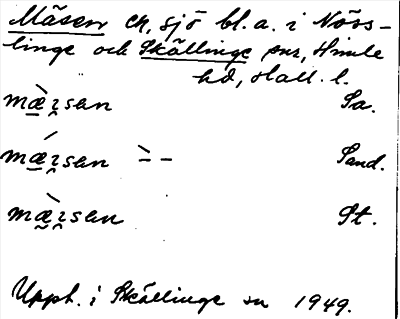 Mäsen ch, sjö bl. a. i Növs-
linge och Skällinge snr, Himle
hd, Hall. l.
mæ̀ɪsen Sa.
mǽɪsen Sand.
mæ̀ɪsen St.
Uppt. i Skällinge sn 1949.